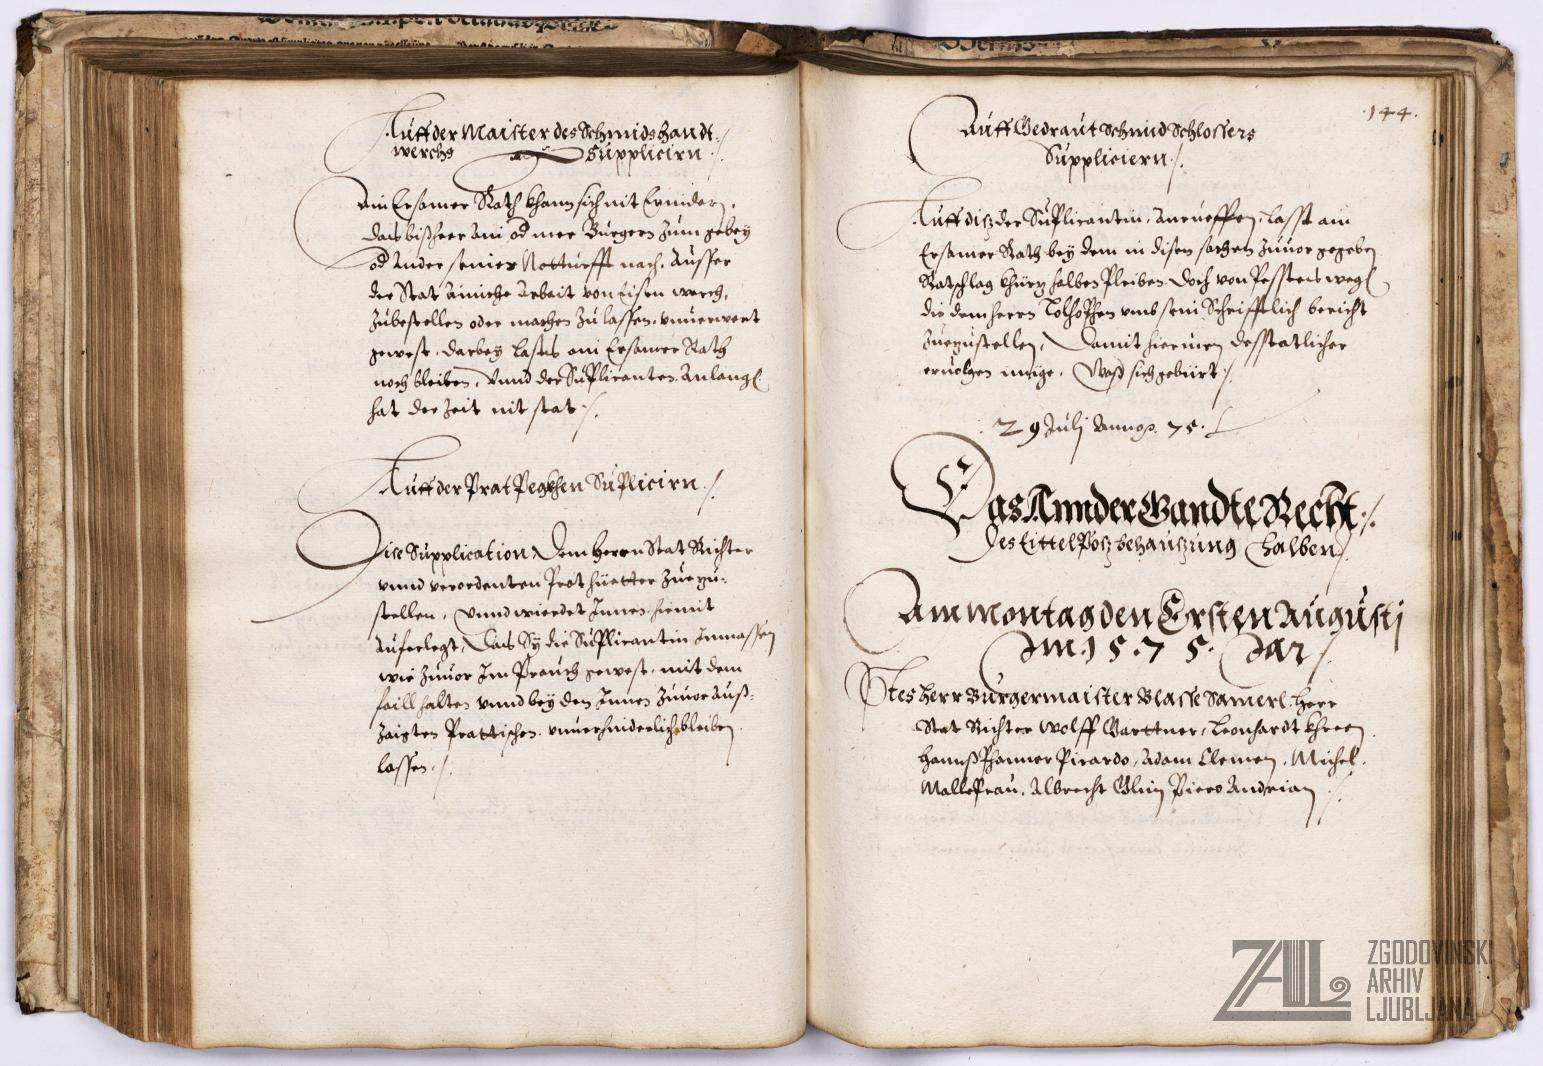 Auff der Maister des Schmidhandt-
werchs Supplicirn ./.
Ain Ersamer Rath khann sich nit Erindern,
das bißheer Ain od mer Burgern zum gebey
od Ander seiner Notturfft nach, Ausser
der Stat Ainiche Arbeit von Eisen werch,
Zubestellen oder machen Zulassen,
gewest, darbey Lasts ain Ersamer Rath
noch bleiben, vnnd der Supplicanten Anlangen
hat der Zeit nit stat ./.
Auff der Prat Pegkhen Suplicirn ./.
Dise Supplication Dem Herrn Stat Richter
vnnd verordenten Zuezu-
stellen, Vnnd wierdet Innen hiemit
Auferlegt, Das Sy die Supplicantin Inmassen
wie Zuuor Im Prauch gewest, mit dem
faill halten vnnd bey den Innen Zuuor Auß-
Zaigten Prottischen, vnuerhinderlich bleiben
lassen ./.
144.
Auff Gedraut Schmid Schlossers
Suppliciern ./.
Auff ditz der Supplicantin Anrueffen, Lasst ain
Ersamer Rath bey dem in disen sachen Zuuor gegeben
Ratschlag khürtz halben Pleiben Doch von Pessers wegen
die dem herrn vmb sein Schrifftlich bericht
Zuezustellen, Damit hierinen desstatlicher
ervolgen müge, Was sich gebürt ./.
29 Julj Anno 75.
Das Annder Gandte Recht ./.
Des behausung halben ./.
Am Montag den Ersten Augustj
Im 1575. Jar ./.
Herr Burgermaister Blasse Samerl, Herr
Stat Richter Wolff Garttner, Leonhardt Khreen
Hannß Phanner Pirardo, Adam Clemen, Michel
Albrecht Piero Andrian ./.
ZAL
ZGODOVINSKI
ARHIV
LJUBLJANA